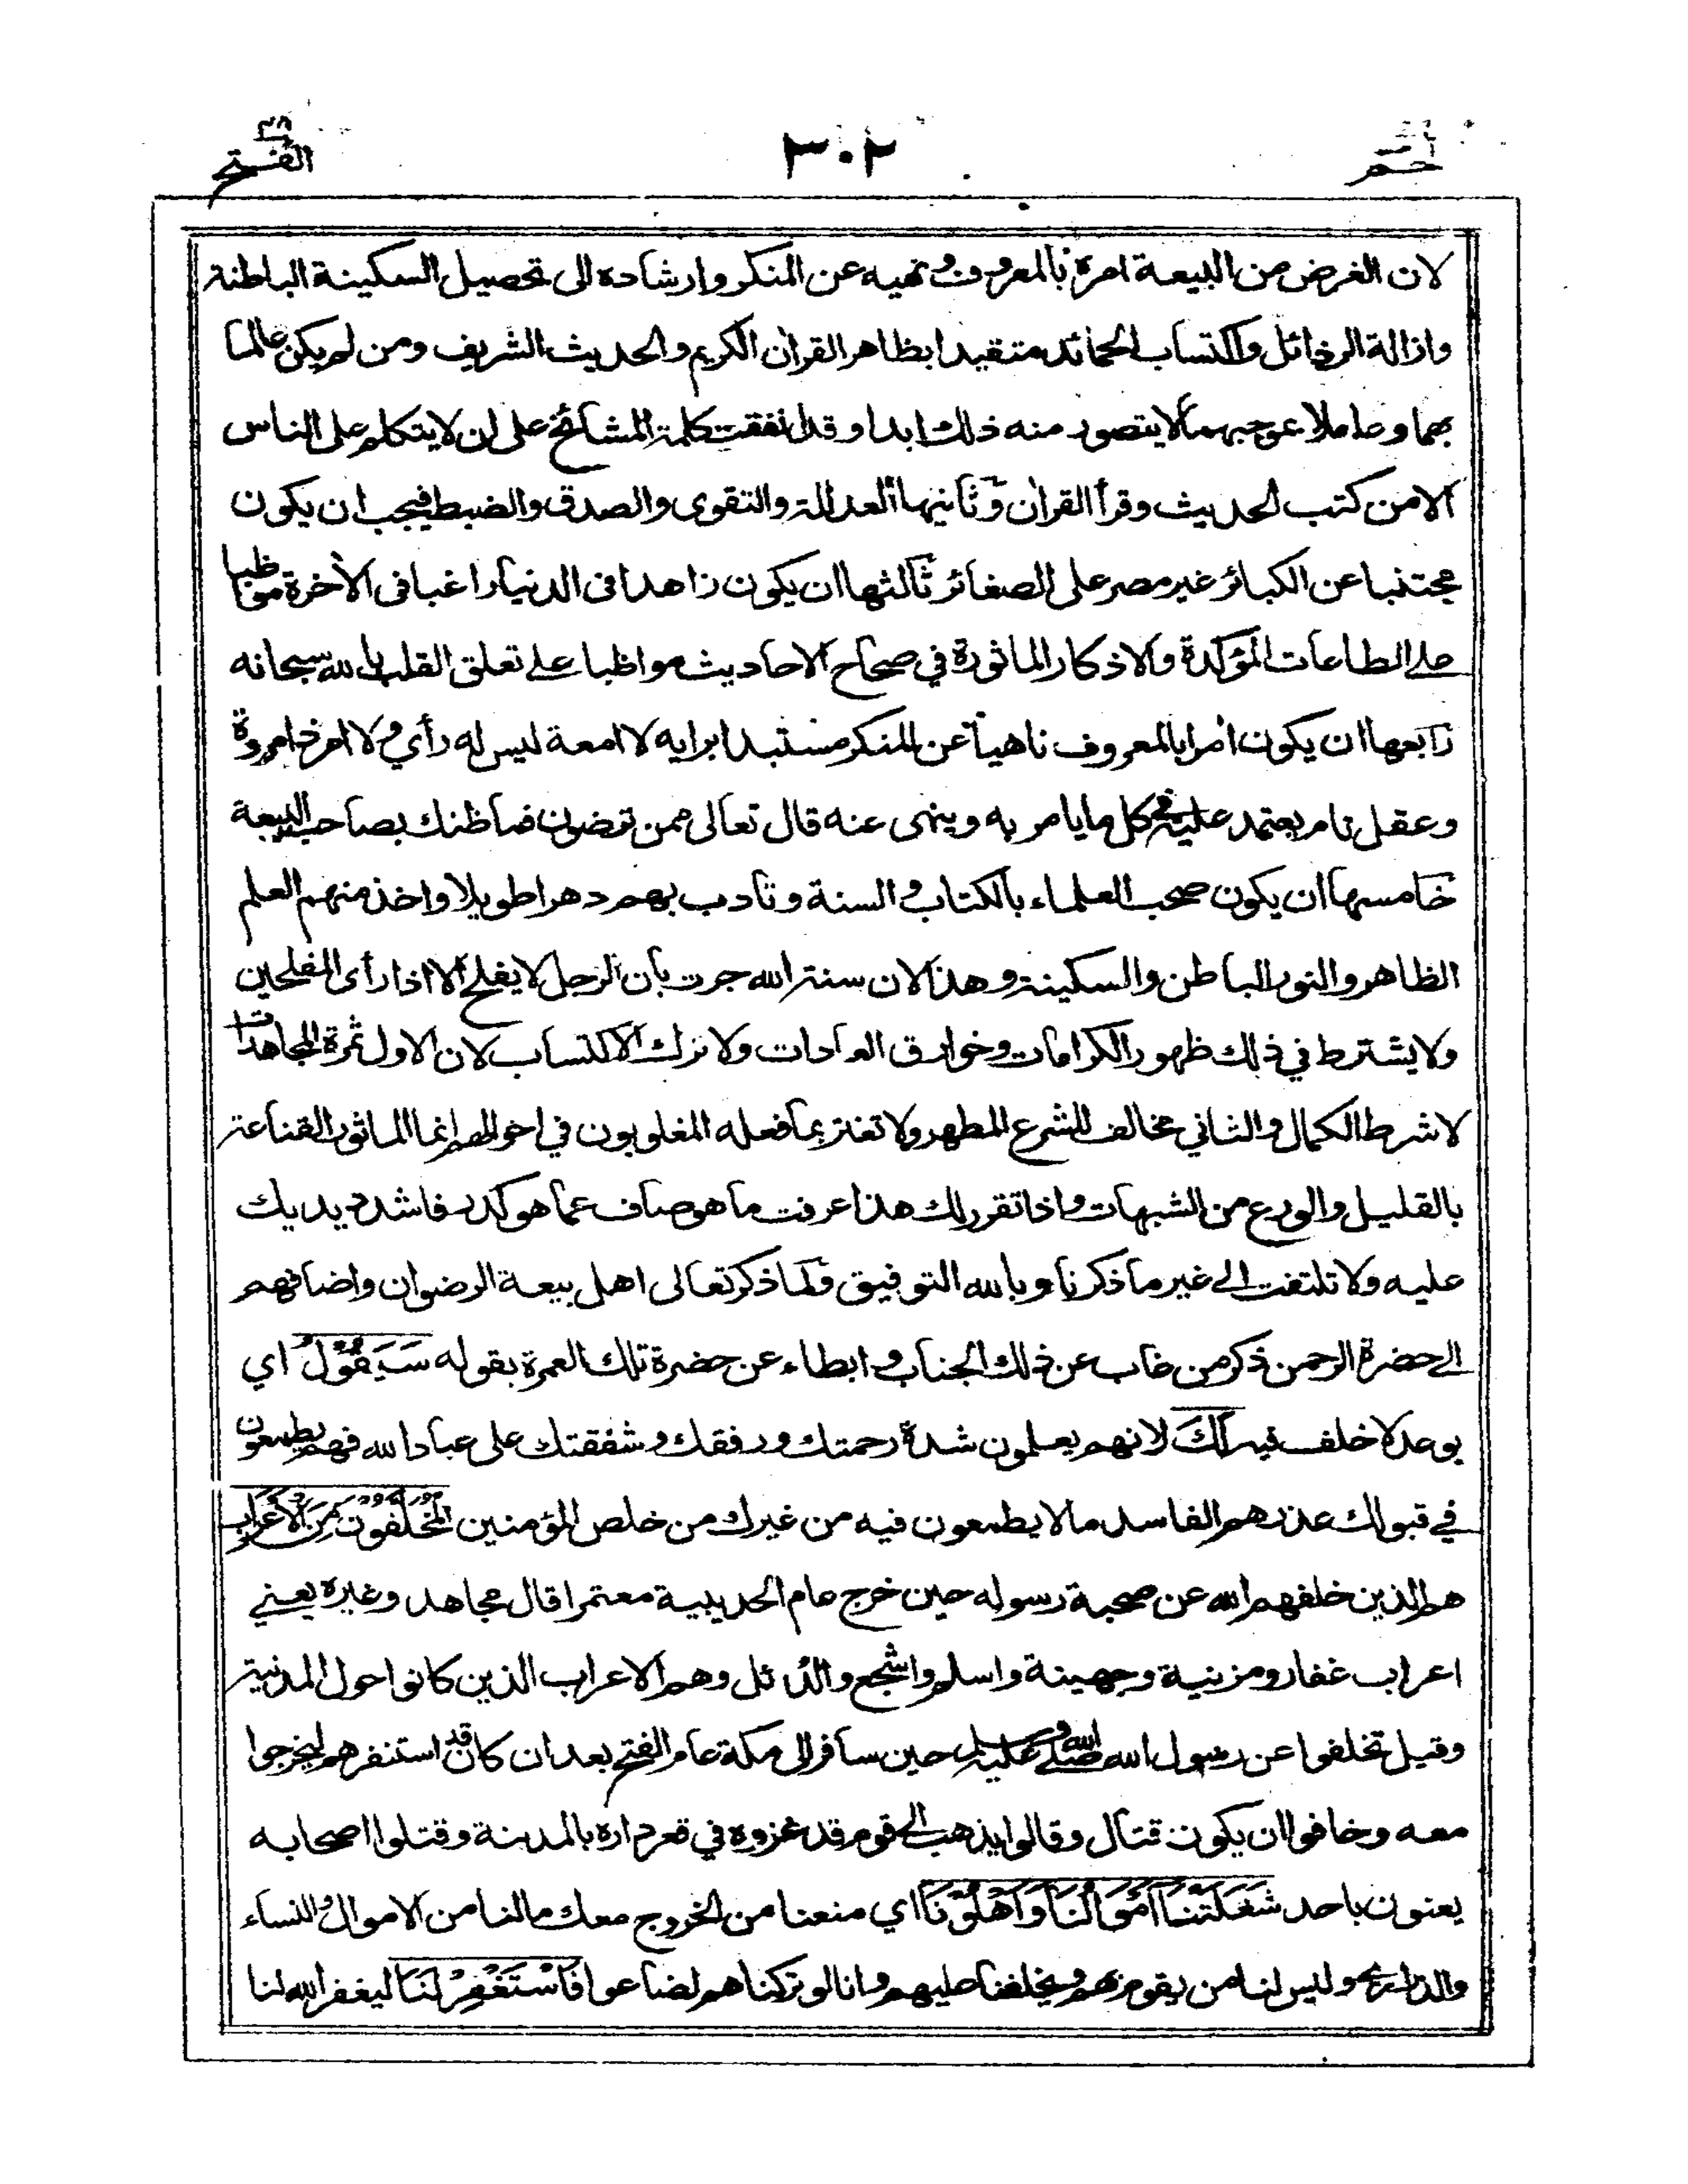 حم ٣٠٢ الفتح ٤٨
لان الغرض من البيعة امره بالمعروف ونهيه عن المنكر وارشاده الى تحصيل السكينة الباطنة
وازالة الرذائل واكتساب الحمائد متقيدا بظاهر القران الكريم والحديث الشريف ومن لم يكن عالما
بهما وعاملا بموجبهما لا يتصور منه ذلك ابدا وقد اتفقت كلمة المشائخ على ان لا يتكلم على الناس
الا من كتب الحديث وقرأ القران وثانيها العدالة والتقوى والصدق والضبط فيجب ان يكون
مجتنبا عن الكبائر غير مصر على الصغائر ثالثها ان يكون زاهدا فى الدنيا راغبا فى الأخرة مواظبا
على الطاعات المؤكدة والاذكار الماثورة في صحاح الاحاديث مواظبا على تعلق القلب بالله سبحانه
رابعها ان يكون امرا بالمعروف ناهيا عن المنكر مستبدا برايه لا امعة ليس له رأي ولا امر ذا مروة
وعقل تام يعتمد عليه في كل ما يامر به وينهى عنه قال تعالى ممن ترضون فما ظنك بصاحب البيعة
خامسها ان يكون صحب العلماء بالكتاب والسنة وتأدب بهم دهرا طويلا واخذ منهم العلم
الظاهر والنور الباطن والسكينة وهذا لان سنة الله جرت بأن الرجل لا يفلح الا اذا رأى المفلحين
ولا يشترط في ذلك ظهور الكرامات وخوارق العادات ولا ترك الاكتساب لان الاول ثمرة المجاهدات
لا شرط الكمال والثاني مخالف للشرع المطهر ولا تغتر بما فعله المغلوبون في احوالهم انما الماثور القناعة
بالقليل والورع من الشبهات واذا تقرر لك هذا عرفت ما هو صاف عما هو كدر فاشدد يديك
عليه ولا تلتفت الى غير ما ذكرناه وبالله التوفيق ولما ذكر تعالى اهل بيعة الرضوان واضافهم
الى حضرة الرحمن ذكر من غاب عن ذلك الجناب وابطاء عن حضرة تلك العمرة بقوله سَيَقُوْلُ اي
بوعد لا خلف فيه لَكَ لانهم يعلمون شدة رحمتك ورفقك وشفقتك على عباد الله فهم يطمعون
في قبولك عذرهم الفاسد ما لا يطمعون فيه من غيرك من خلص المؤمنين الْمُخَلَّفُوْنَ مِنَ الْاَعْرَابِ
هم الذين خلفهم الله عن صحبة رسوله حين خرج عام الحديبية معتمرا قال مجاهد وغيره يعني
اعراب غفار ومزينية وجهينة واسلم واشجع والدئل وهم الاعراب الذين كانوا حول المدنية
وقيل تخلفوا عن رسول الله صلى الله عليه وسلم حين سافر الى مكة عام الفتح بعد ان كان قد استنفرهم ليخرجوا
معه وخافوا ان يكون قتال وقالوا يذهب الى قوم قد غزوه في قعر داره بالمدينة وقتلوا اصحابه
يعنون باحد شَغَلَتْنَآ اَمْوَالُنَا وَاَهْلُوْنَا اي منعنا من الخروج معك ما لنا من الاموال والنساء
والذراري وليس لنا من يقوم بهم ويخلفنا عليهم وانا لو تركناهم لضاعوا فَاسْتَغْفِرْ لَنَا ليغفر الله لنا